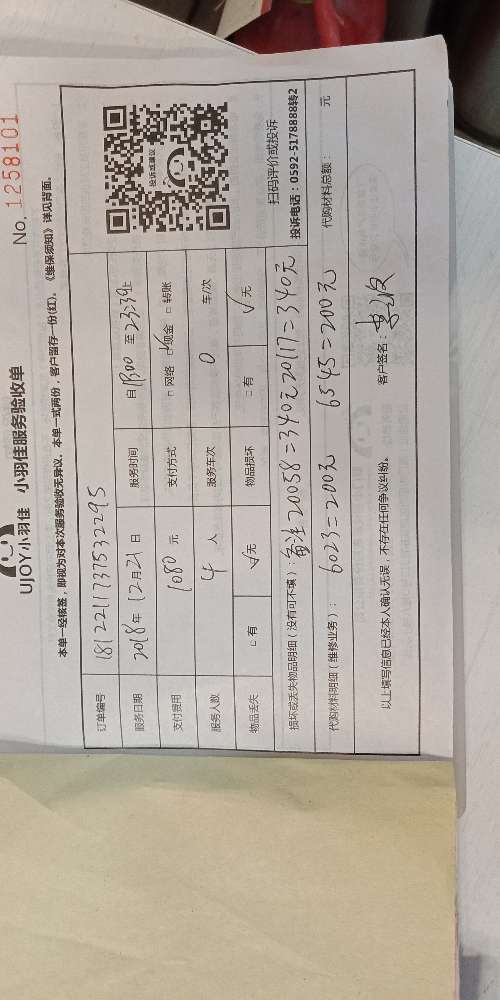 UJOY小羽佳 小羽佳服务验收单 No. 1258101
本单一经核签，即视为对本次服务验收无异议。本单一式两份，客户留存一份(红)，《维保须知》详见背面。
订单编号 1812211737532295
服务日期 2018年12月21日 服务时间 自18:00至23:39止
支付费用 1080元 支付方式 □网络 ☑现金 □转账
服务人数 4人 服务车次 0 车/次
物品丢失 □有 ☑无 物品损坏 □有 ☑无
投诉或建议
扫码评价或投诉
投诉电话：0592-5178888转2
损坏或丢失物品明细（没有可不填）：备注20058=340元 20117=340元
代购材料明细（维修业务）：6023=200元 6545=200元 代购材料总额： 元
以上填写信息已经本人确认无误，不存在任何争议纠纷。 客户签名：